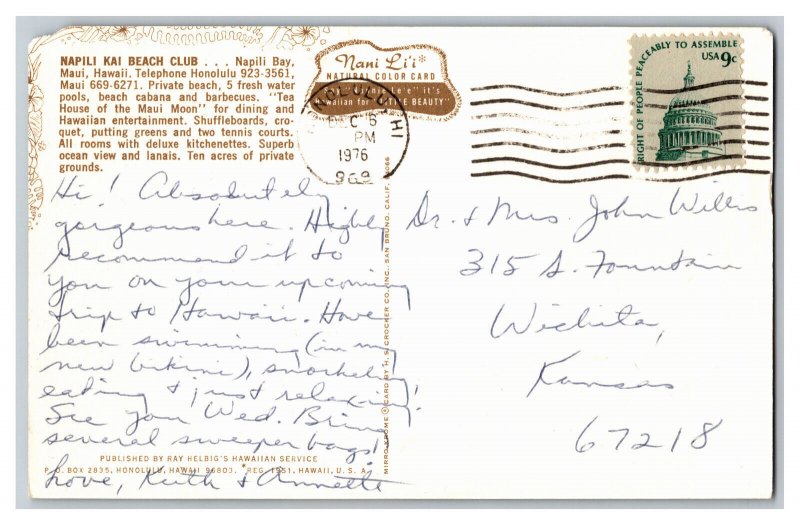 NAPILI KAI BEACH CLUB . . . Napili Bay,
Maui, Hawaii. Telephone Honolulu 923-3561,
Maui 669-6271. Private beach, 5 fresh water
pools, beach cabana and barbecues. "Tea
House of the Maui Moon" for dining and
Hawaiian entertainment. Shuffleboards, cro-
quet, putting greens and two tennis courts.
All rooms with deluxe kitchenettes. Superb
ocean view and lanais. Ten acres of private
grounds.
Nani Li'i*
NATURAL COLOR CARD
it's
Hawaiian for "LITTLE BEAUTY"
HONOLULU HI
DEC 6
PM
1976
969
RIGHT OF PEOPLE PEACEABLY TO ASSEMBLE
USA 9c
Hi! Absolutely
gorgeous here. Highly
recommend it to
you on your upcoming
trip to Hawaii. Have
been swimming (in my
new bikini), snorkeling
eating & just relaxing!
See you Wed. Bring
several sweeper bags!
Love, Ruth & Annette
Dr. & Mrs. John Willis
315 S. Fountain
Wichita,
Kansas
67218
MIRRO-KROME ® CARD BY H. S. CROCKER CO., INC., SAN BRUNO, CALIF. 94066
PUBLISHED BY RAY HELBIG'S HAWAIIAN SERVICE
P. O. BOX 2835, HONOLULU, HAWAII 96803. *REG. 1951, HAWAII, U. S. A.